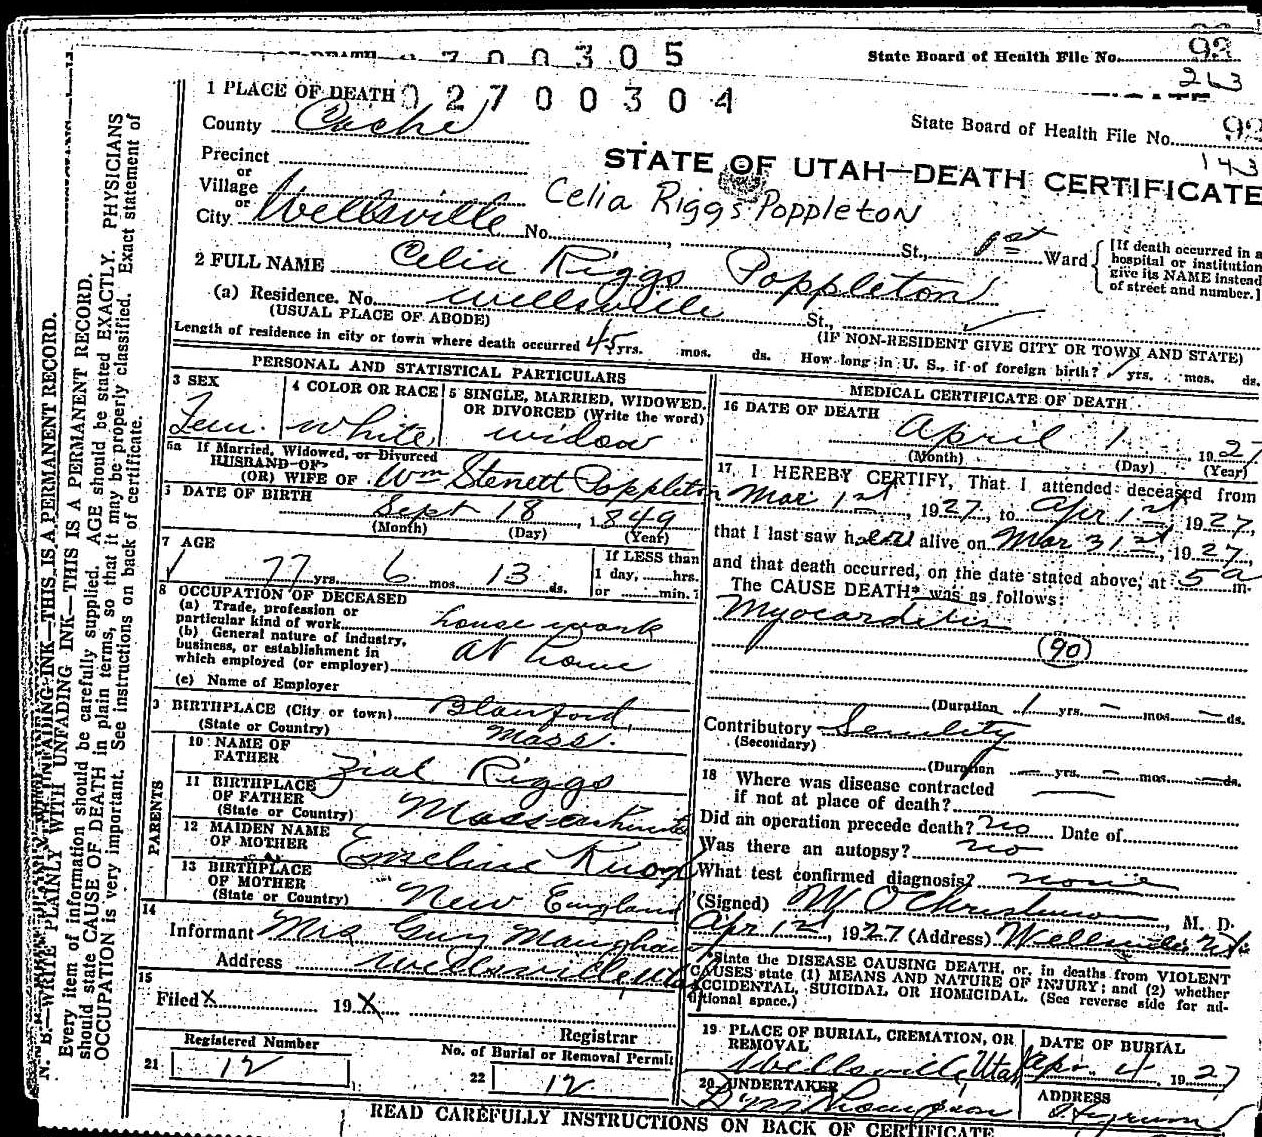 OF DEATH 2 7 0 0 3 0 5
State Board of Health File No. 93
263
1 PLACE OF DEATH 0 2 7 0 0 3 0 4
County Cache
State Board of Health File No. 92
143
Precinct
or
STATE OF UTAH—DEATH CERTIFICATE
Village
or
Celia Riggs Poppleton
City Wellsville No. St., 1st Ward
[If death occurred in a
hospital or institution
give its NAME instead
of street and number.]
2 FULL NAME Celia Riggs Poppleton
(a) Residence. No. Wellsville St.,
(USUAL PLACE OF ABODE)
(IF NON-RESIDENT GIVE CITY OR TOWN AND STATE)
Length of residence in city or town where death occurred 45 yrs. mos. ds. How long in U. S., if of foreign birth? yrs. mos. ds.
PERSONAL AND STATISTICAL PARTICULARS
3 SEX
Fem.
4 COLOR OR RACE
White
5 SINGLE, MARRIED, WIDOWED,
OR DIVORCED (Write the word)
widow
5a If Married, Widowed, or Divorced
HUSBAND OF
(OR) WIFE OF Wm Stenett Poppleton
6 DATE OF BIRTH
Sept 18, 1849
(Month) (Day) (Year)
7 AGE
77 yrs. 6 mos. 13 ds.
If LESS than
1 day, hrs.
or min.?
8 OCCUPATION OF DECEASED
(a) Trade, profession or
particular kind of work house work
(b) General nature of industry,
business, or establishment in
which employed (or employer) at home
(c) Name of Employer
9 BIRTHPLACE (City or town) Blanford
(State or Country) Mass.
PARENTS
10 NAME OF
FATHER Zial Riggs
11 BIRTHPLACE
OF FATHER
(State or Country) Massachusetts
12 MAIDEN NAME
OF MOTHER Emeline Knox
13 BIRTHPLACE
OF MOTHER
(State or Country) New England
14
Informant Mrs Guy Maughan
Address Wellsville Utah
15
Filed X 19X
Registrar
Registered Number
21 12
No. of Burial or Removal Permit
22 12
MEDICAL CERTIFICATE OF DEATH
16 DATE OF DEATH
April 1 1927
(Month) (Day) (Year)
17 I HEREBY CERTIFY, That I attended deceased from
Mar 1st, 1927, to Apr 1st, 1927,
that I last saw her alive on Mar 31st, 1927,
and that death occurred, on the date stated above, at 5a m.
The CAUSE DEATH* was as follows:
Myocarditis
(90)
(Duration 1 yrs. – mos. – ds.
Contributory Senility
(Secondary)
(Duration — yrs. – mos. — ds.
18 Where was disease contracted
if not at place of death?
Did an operation precede death? no Date of
Was there an autopsy? no
What test confirmed diagnosis? none
(Signed) W O Christenson, M. D.
Apr 1st, 1927 (Address) Wellsville Utah
*State the DISEASE CAUSING DEATH, or, in deaths from VIOLENT
CAUSES state (1) MEANS AND NATURE OF INJURY; and (2) whether
ACCIDENTAL, SUICIDAL OR HOMICIDAL. (See reverse side for ad-
ditional space.)
19 PLACE OF BURIAL, CREMATION, OR
REMOVAL
Wellsville, Utah
DATE OF BURIAL
Apr. 4, 1927
20 UNDERTAKER
Thompson
ADDRESS
Hyrum
READ CAREFULLY INSTRUCTIONS ON BACK OF CERTIFICATE
N. B.—WRITE PLAINLY WITH UNFADING INK—THIS IS A PERMANENT RECORD.
Every item of information should be carefully supplied. AGE should be stated EXACTLY. PHYSICIANS
should state CAUSE OF DEATH in plain terms, so that it may be properly classified. Exact statement of
OCCUPATION is very important. See instructions on back of certificate.